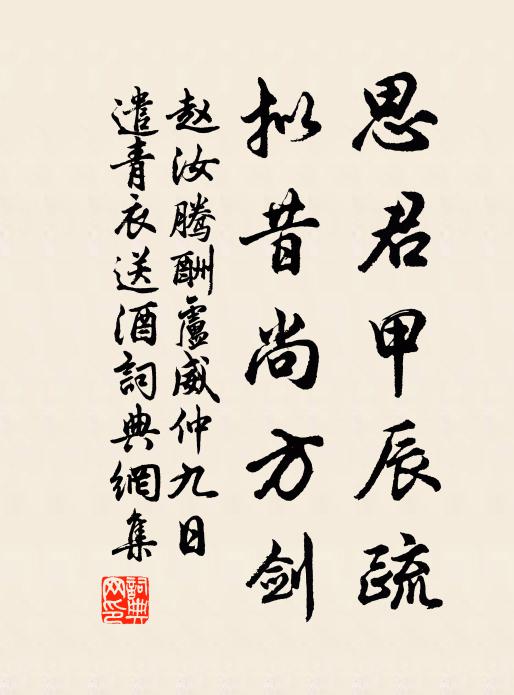 思君甲辰疏
拟昔尚方剑
赵汝腾酬盧威仲九日
遣青衣送酒詞典網集
詞典網印